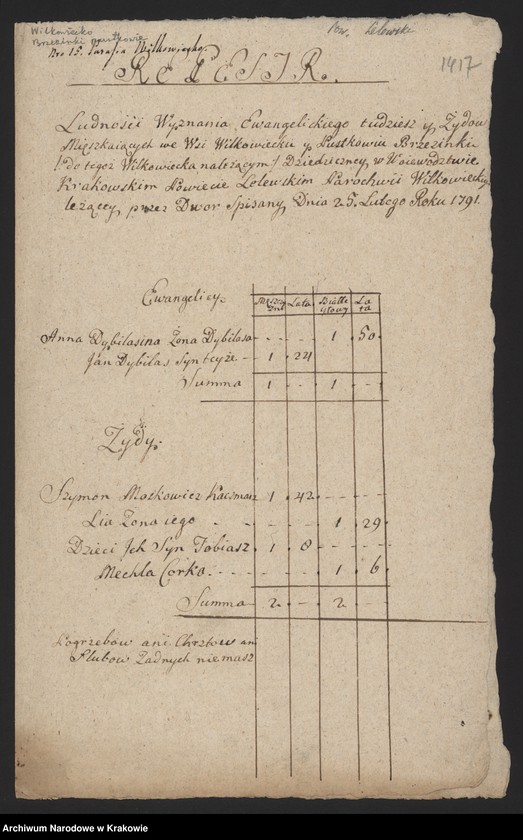 Wilkowiecko
Brzezinki pustkowie
Pow. Lelowski
Nro 15. Parafia Wilkowiecka.
1417
REIESTR.
Ludnosii Wyznania Ewangelickiego tudziesz y Zydow
Mięszkaiących we Wsi Wilkowiecku y Pustkowiu Brzezinki
/:do tegoż Wilkowiecka należącym:/ Dziedziczney, w Woiewodztwie
Krakowskim Powiecie Lelewskim Parochwii Wilkowieckiy
leżącey, przez Dwor Spisany, Dnia 25. Lutego Roku 1791.
Ewangelicy. Męszczyzni Lata Białłegłowy Lata
Anna Dybilasina Zona Dybilasa - - - - 1 50
Jan Dybilas Syn teyże - 1 24
Summa 1 - 1 -
Zydy.
Szymon Moskowicz Karczmarz 1 42 - - - -
Lia Zona iego - - - - 1 29
Dzieci Ich Syn Tobiasz 1 8 - - - -
Mechla Corka. - - - - 1 6
Summa 2 - 2 -
Pogrzebow ani Chrztow ani
Slubow Zadnych niemasz
Archiwum Narodowe w Krakowie